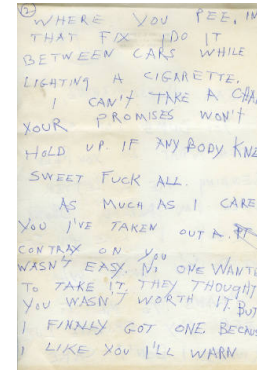 ②
WHERE YOU PEE. IN
THAT FIX I DO IT
BETWEEN CARS WHILE
LIGHTING A CIGARETTE.
I CAN'T TAKE A CHA
YOUR PROMISES WON'T
HOLD UP. IF ANY BODY KNE
SWEET FUCK ALL.
AS MUCH AS I CARE
YOU I'VE TAKEN OUT A.
CONTRAX ON YOU
WASN'T EASY. NO ONE WANT
TO TAKE IT. THEY THOUGHT
YOU WASN'T WORTH IT. BUT
I FINALLY GOT ONE. BECAUS
I LIKE YOU I'LL WARN